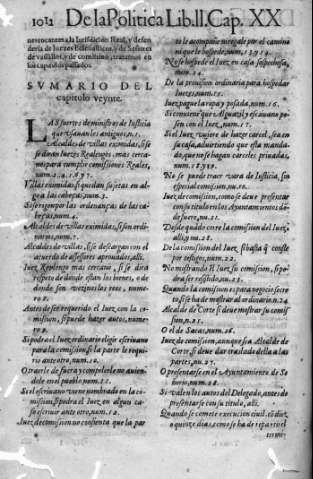 1012 De la Politica Lib. II. Cap. XX
reuocaremos la Iurisdicion Real, y defen
deria de Iuezes Eclesiasticos, y de Señores
de vassallos, y de comission, trataremos en
los capitulos passados.
SVMARIO DEL
capitulo veynte.
LAS suertes de ministros de Iusticia
que vsauan los antiguos, n. 1.
Alcaldes de villas eximidas, si se
Villas eximidas si quedan sujetas en al-
go a las cabeças, num. 3.
Si se rigen por las ordenanças de las ca-
beças, num. 4.
Alcaldes de villas eximidas, si son ordi-
narios, num. 7.
Alcaldes de villas, si se descargan con el
acuerdo de assessores aprouados, alli.
Iuez Realengo mas cercano, si se dira
respeto de donde estan los bienes, o de
donde son vezinos los reos, nume-
ro.
Antes de ser requerido el Iuez con la co-
mission, si puede hazer autos, nume-
ro 9.
Si podra el Iuez ordinario elegir escriuano
para la comission, si la parte le requi-
rio ante otro, num. 10.
O traerle de fuera y compelerle no auien-
dole en el pueblo num. 11.
Si el escriuano viene nombrado en la co-
mission, si podra el Iuez en algun ca-
so escriuir ante otro, num. 12.
Iuez de comission no consienta que la par
te le acompañe ni regale por el camino
ni que le hospede, num. 13. 14.
No se hospede el Iuez en casa sospechosa,
num. 14.
De la prouision ordinaria para hospedar
Iuezes, num. 15.
Iuez pague la ropa y posada, num. 16.
Si conuiene que Alguazil y escriuano po-
sen con el Iuez, num. 17.
Si el Iuez vuiere de hazer carcel, sea en
su casa, aduirtiendo que esta manda-
do, que no se hagan carceles priuadas,
num. 18. y 19.
No se puede traer vara de Iusticia, sin
especial comission, nu. 20.
Iuez de comission, como se deue presentar
con su titulo en los Ayuntamientos dõ-
de fuere, nu. 21.
Desde quãdo corre la comission del Iuez,
alli, y nu. 28.
De la comission del Iuez si basta q̃ conste
por testigos, num. 22.
No mostrando el Iuez su comission, si po-
dra ser resistido, nu. 23.
Quando la comission es para negocio secre
to, si se ha de mostrar al ordinario, n. 24
Alcalde de Corte si deue mostrar su comis
sion, n. 25.
O el de Sacas, num. 26.
Iuez de comission, aunque sea Alcalde de
Corte si deue dar traslado della a las
partes, nu. 27.
O presentarse en el Ayuntamiento de Se
ñorio, num. 28.
Si valen los autos del Delegado, antes de
presentarse con su titulo, alli.
Quando se comete execucion ciuil, si diez
o quinze dias, como se ha de repartir el